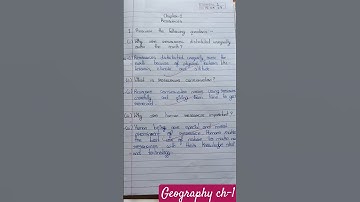 Chapter-1
Resources
1. Answer the following questions :-
(i) Why are resources distributed unequally over the earth?
(A) Resources distributed unequally over the earth because of physical factors like terrain, climate and altitude.
(ii) What is resource conservation?
(A) Resource conservation means using resources carefully and giving them time to get renewed.
(iii) Why are human resources important?
(A) Human beings are special and most
of resources. Humans make
the best use of nature to create more
resources with their knowledge, skill
and technology.
Geography ch-1